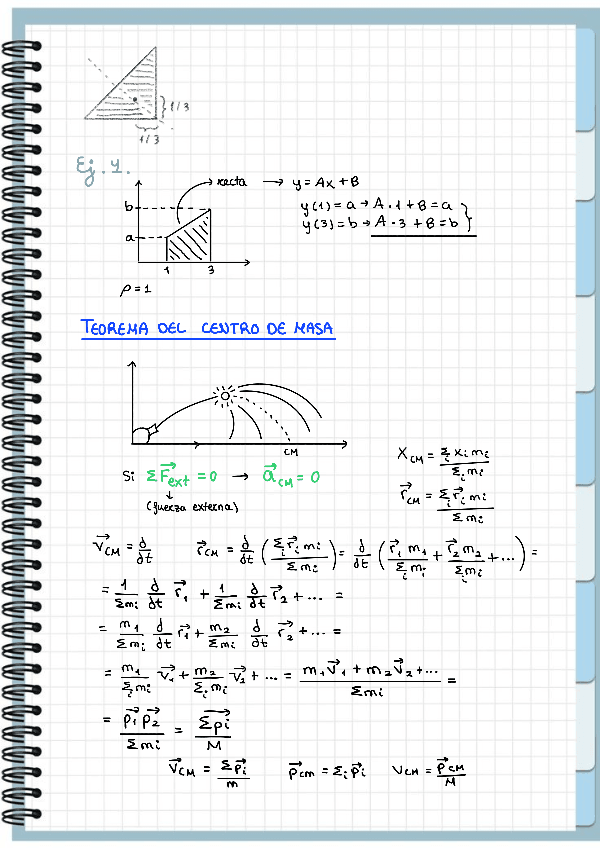 1/3
1/3
Ej. 1.
recta → y = Ax + B
b
a
y(1) = a → A · 1 + B = a
y(3) = b → A · 3 + B = b
1 3
ρ = 1
TEOREMA DEL CENTRO DE MASA
CM
Si Σ F⃗ext = 0 → a⃗CM = 0
(fuerza externa)
XCM = Σi xi mi / Σi mi
r⃗CM = Σi r⃗i mi / Σ mi
v⃗CM = d/dt r⃗CM = d/dt (Σi r⃗i mi / Σ mi) = d/dt (r⃗1 m1 / Σi mi + r⃗2 m2 / Σi mi + ...) =
= 1/Σmi d/dt r⃗1 + 1/Σmi d/dt r⃗2 + ... =
= m1/Σmi d/dt r⃗1 + m2/Σmi d/dt r⃗2 + ... =
= m1/Σi mi v⃗1 + m2/Σi mi v⃗2 + ... = m1 v⃗1 + m2 v⃗2 + ... / Σmi =
= p⃗1 p⃗2 / Σmi = Σp⃗i / M
v⃗CM = Σp⃗i / m p⃗cm = Σi p⃗i vCM = p⃗CM / M